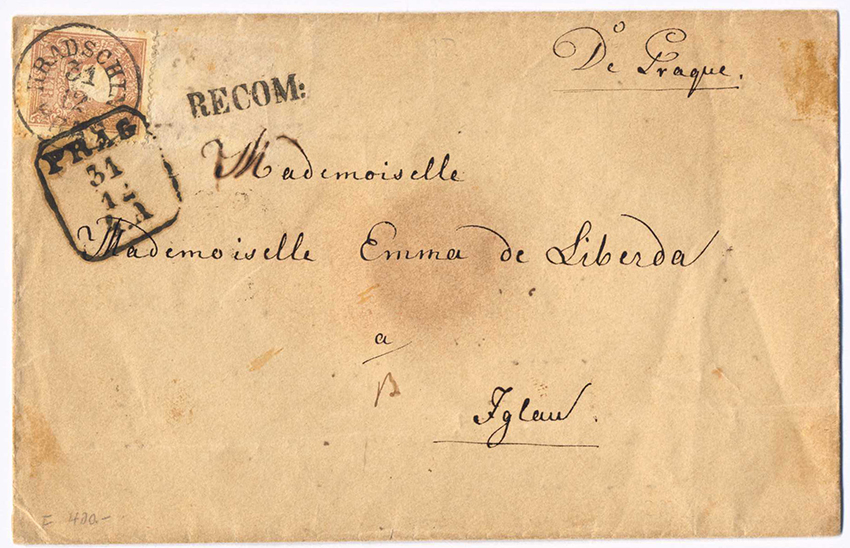 HRADSCHIN
31
12
PRAG
31
12
RECOM:
De Prague.
Mademoiselle
Mademoiselle Emma de Liberda
a
Iglau.
400.-